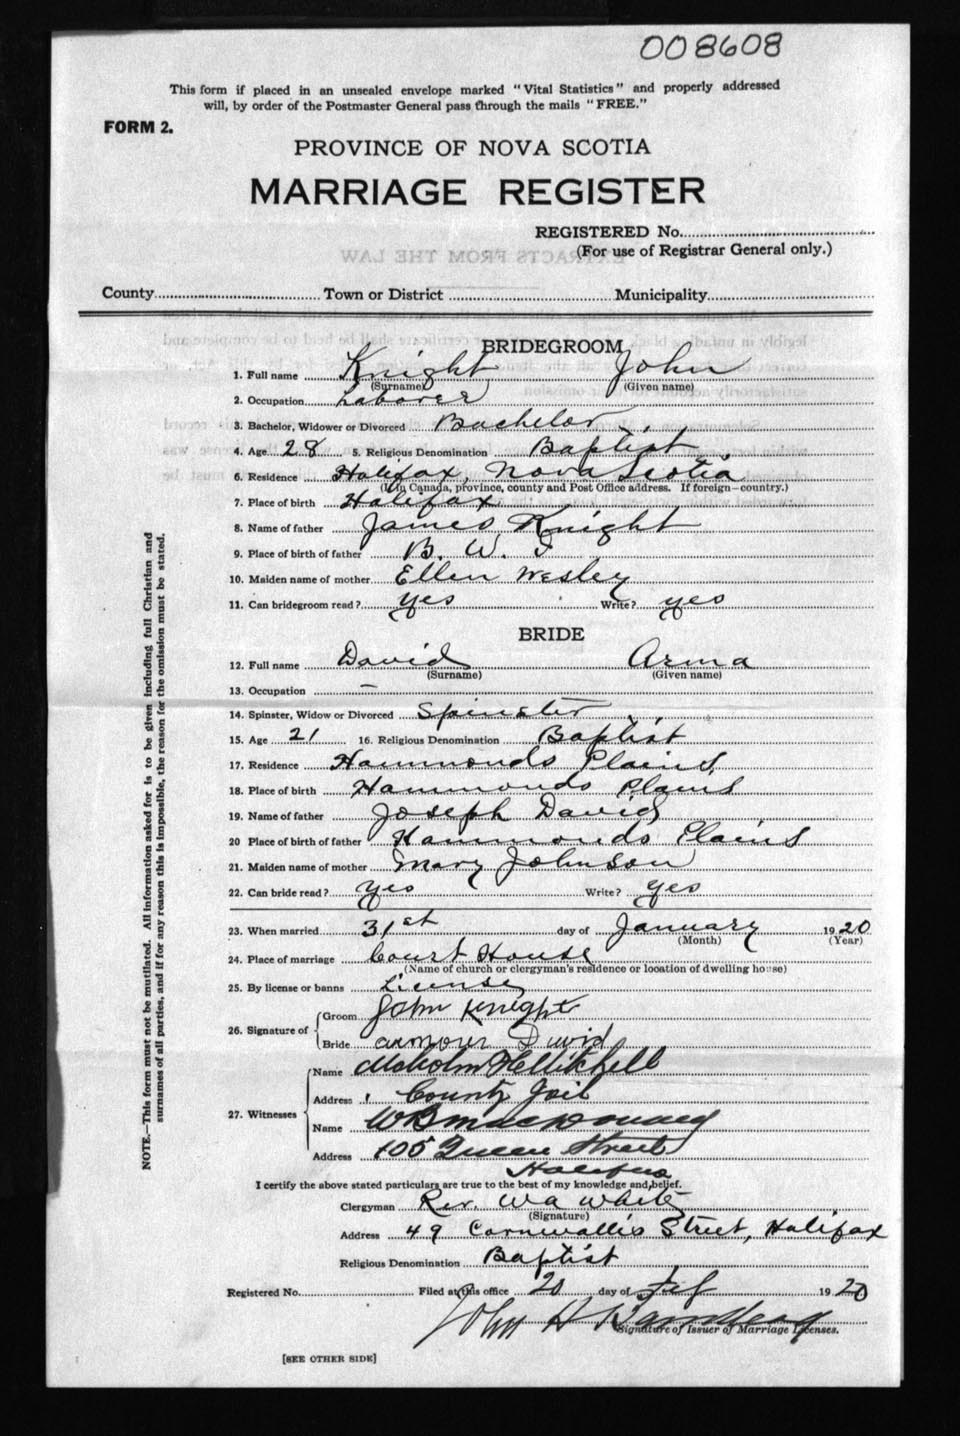 008608
This form if placed in an unsealed envelope marked "Vital Statistics" and properly addressed
will, by order of the Postmaster General pass through the mails "FREE."
FORM 2.
PROVINCE OF NOVA SCOTIA
MARRIAGE REGISTER
REGISTERED No.
(For use of Registrar General only.)
EXTRACTS FROM THE LAW
County Town or District Municipality
BRIDEGROOM
1. Full name Knight John
(Surname) (Given name)
2. Occupation Laborer
3. Bachelor, Widower or Divorced Bachelor
4. Age 28 5. Religious Denomination Baptist
6. Residence Halifax, Nova Scotia
(In Canada, province, county and Post Office address. If foreign—country.)
7. Place of birth Halifax
8. Name of father James Knight
9. Place of birth of father B. W. I.
10. Maiden name of mother Ellen Wesley
11. Can bridegroom read? yes Write? yes
BRIDE
12. Full name David Arma
(Surname) (Given name)
13. Occupation —
14. Spinster, Widow or Divorced Spinster
15. Age 21 16. Religious Denomination Baptist
17. Residence Hammonds Plains
18. Place of birth Hammonds Plains
19. Name of father Joseph David
20 Place of birth of father Hammonds Plains
21. Maiden name of mother Mary Johnson
22. Can bride read? yes Write? yes
23. When married 31st day of January 1920
(Month) (Year)
24. Place of marriage Court House
(Name of church or clergyman's residence or location of dwelling house)
25. By license or banns License
26. Signature of Groom John Knight
Bride armour David
27. Witnesses Name Malcolm H Mitchell
Address County Jail
Name W B MacDonald
Address 105 Queen Street
Halifax
I certify the above stated particulars are true to the best of my knowledge and belief.
Clergyman Rev. W A White
(Signature)
Address 49 Cornwallis Street, Halifax
Religious Denomination Baptist
Registered No. Filed at this office 20 day of Feb 1920
John H
Signature of Issuer of Marriage Licenses.
[SEE OTHER SIDE]
NOTE.—This form must not be mutilated. All information asked for is to be given including full Christian and
surnames of all parties, and if for any reason this is impossible, the reason for the omission must be stated.